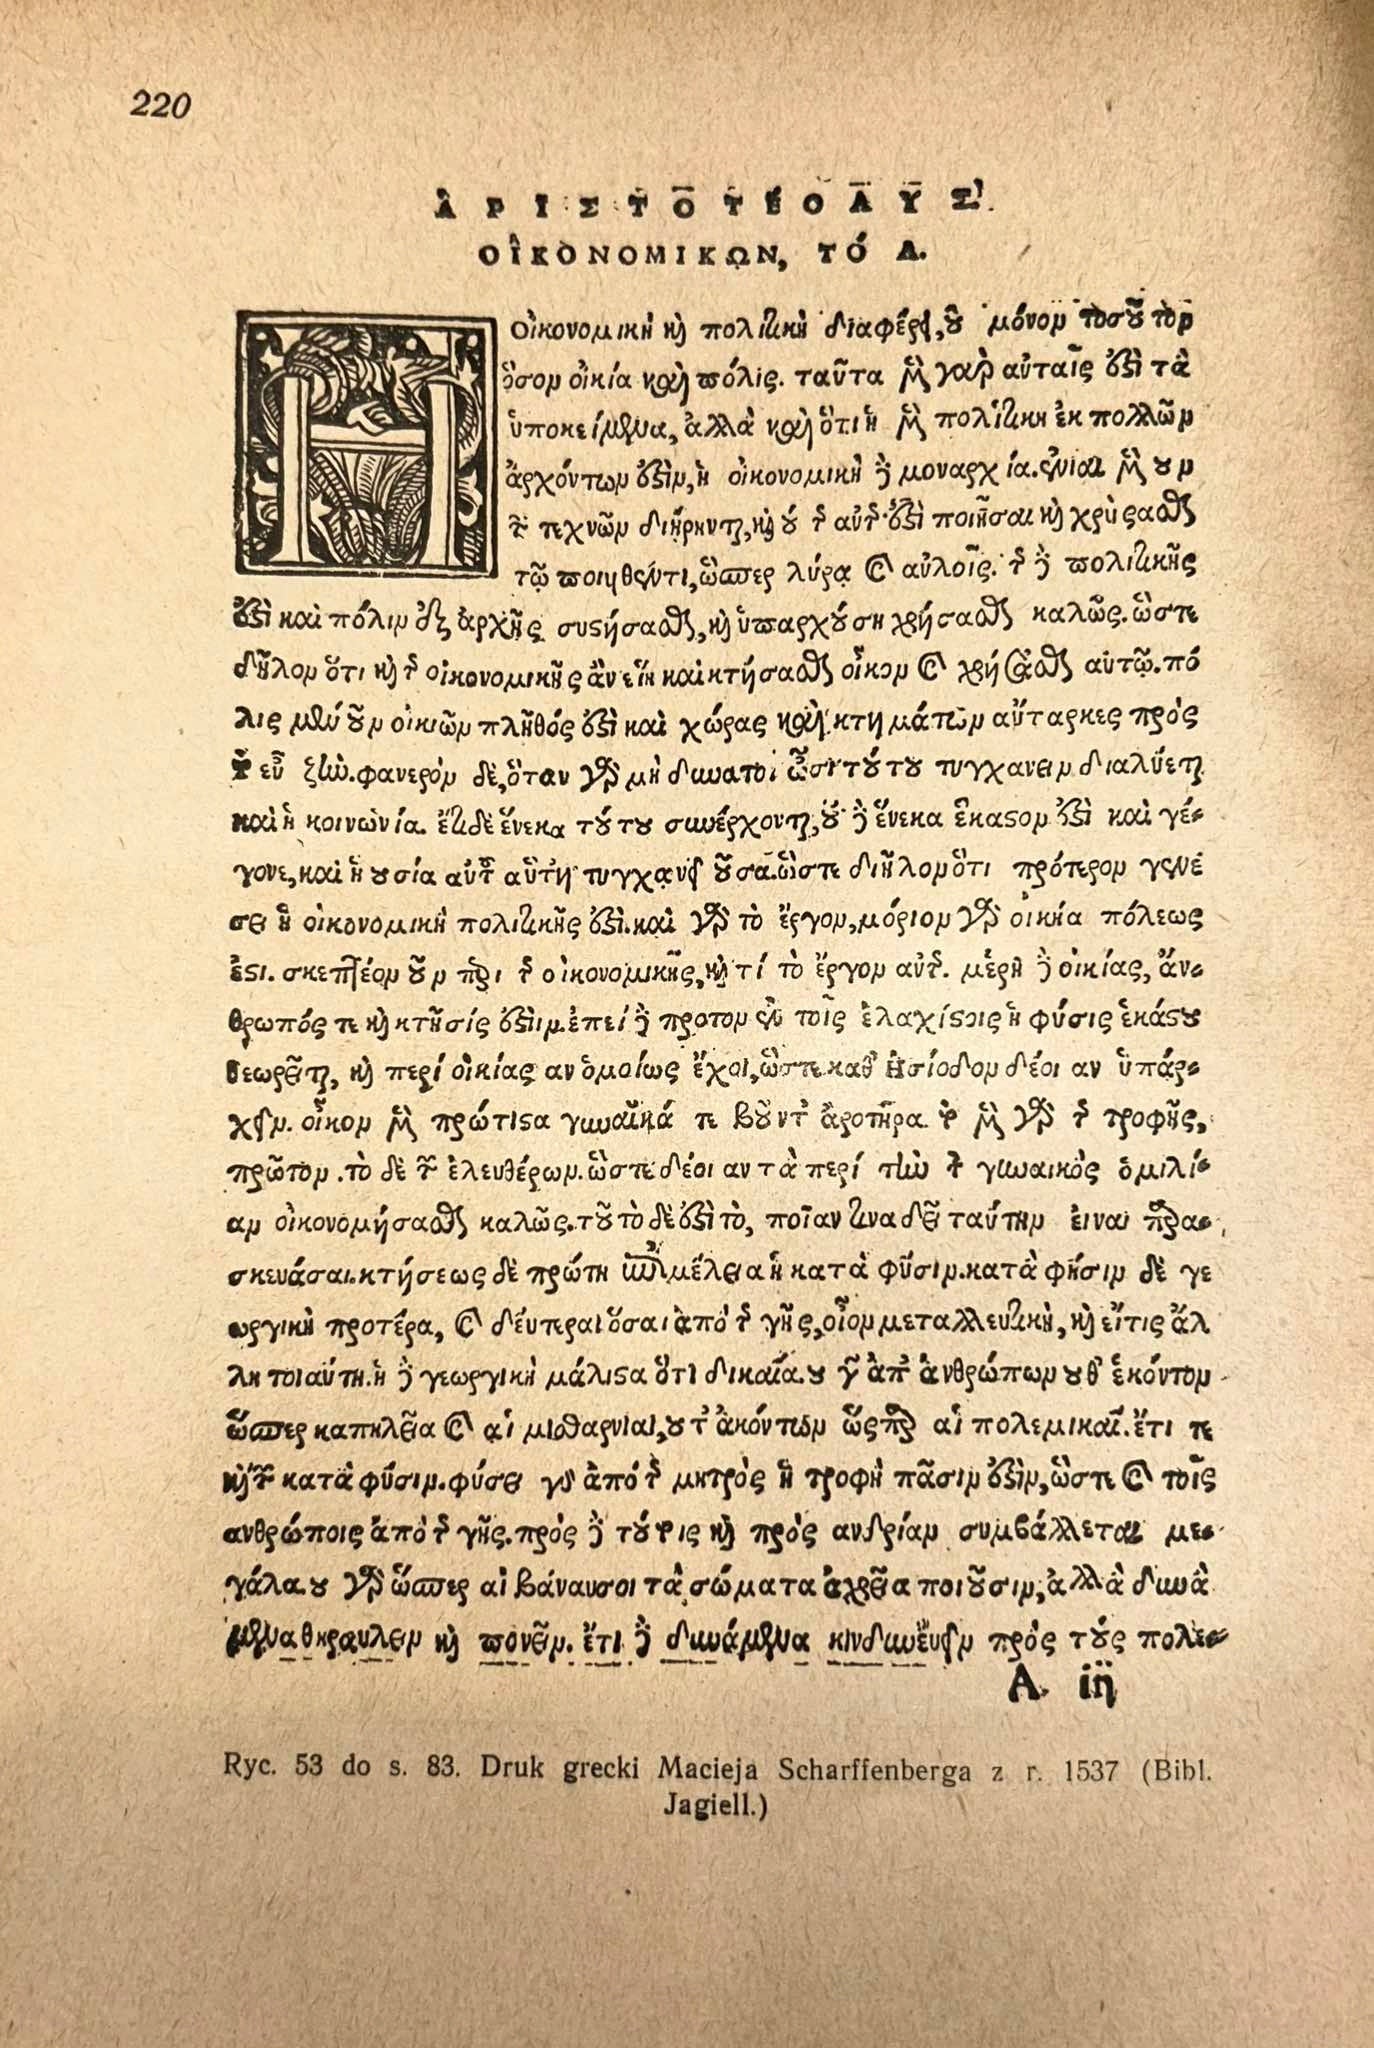 220
ἈΡΙΣΤΟΤΈΟΛΥΣ
ΟἸΚΟΝΟΜΙΚΩΝ, ΤΌ Α.
Η οἰκονομικὴ καὶ πολιτικὴ διαφέρει, οὐ μόνον τοσοῦτον
ὅσον οἰκία καὶ πόλις. ταῦτα μὲν γὰρ αὐταῖς ἐστὶ τὰ
ὑποκείμενα, ἀλλὰ καὶ ὅτι ἡ μὲν πολιτικὴ ἐκ πολλῶν
ἀρχόντων ἐστὶν, ἡ οἰκονομικὴ δὲ μοναρχία. ἔνιαι μὲν οὖν
τῶν τεχνῶν διῄρηνται, καὶ οὐ τῆς αὐτῆς ἐστὶ ποιῆσαι καὶ χρήσασθαι
τῷ ποιηθέντι, ὥσπερ λύρᾳ καὶ αὐλοῖς. τῆς δὲ πολιτικῆς
ἐστὶ καὶ πόλιν ἐξ ἀρχῆς συστήσασθαι, καὶ ὑπαρχούσῃ χρήσασθαι καλῶς. ὥστε
δῆλον ὅτι καὶ τῆς οἰκονομικῆς ἂν εἴη καὶ κτήσασθαι οἶκον καὶ χρήσασθαι αὐτῷ. πό
λις μὲν οὖν οἰκιῶν πλῆθός ἐστὶ καὶ χώρας καὶ κτημάτων αὔταρκες πρὸς
τὸ εὖ ζῆν. φανερὸν δὲ, ὅταν γὰρ μὴ δυνατοὶ ὦσι τούτου τυγχάνειν διαλύεται
καὶ ἡ κοινωνία. ἔτι δὲ ἕνεκα τούτου συνέρχονται, οὗ δὲ ἕνεκα ἕκαστον ἐστὶ καὶ γέ-
γονε, καὶ ἡ οὐσία αὐτοῦ αὕτη τυγχάνει οὖσα. ὥστε δῆλον ὅτι πρότερον γενέ
σει ἡ οἰκονομικὴ πολιτικῆς ἐστὶ. καὶ γὰρ τὸ ἔργον, μόριον γὰρ οἰκία πόλεως
ἐστι. σκεπτέον οὖν περὶ τῆς οἰκονομικῆς, καὶ τί τὸ ἔργον αὐτῆς. μέρη δὲ οἰκίας, ἄν-
θρωπός τε καὶ κτῆσίς ἐστιν. ἐπεὶ δὲ πρῶτον ἐν τοῖς ἐλαχίστοις ἡ φύσις ἑκάστου
θεωρεῖται, καὶ περί οἰκίας αν ὁμοίως ἔχοι, ὥστε καθ' Ἡσίοδον δέοι αν ὑπάρ-
χειν. οἶκον μὲν πρώτιστα γυναῖκά τε βοῦν τ' ἀροτῆρα. τὸ μὲν γὰρ τῆς τροφῆς,
πρῶτον. τὸ δὲ τῶν ἐλευθέρων. ὥστε δέοι αν τὰ περί τὴν τῆς γυναικὸς ὁμιλί-
αν οἰκονομήσασθαι καλῶς. τοῦτο δὲ ἐστὶ τὸ, ποῖαν τινα δεῖ ταύτην εἰναι παρα-
σκευάσαι. κτήσεως δὲ πρώτη ἐπιμέλεια ἡ κατὰ φύσιν. κατὰ φήσιν δὲ γε
ωργικὴ προτέρα, καὶ δεύτεραι ὅσαι ἀπὸ τῆς γῆς, οἷον μεταλλευτικὴ, καὶ εἴτις ἄλ
λη τοιαύτη. ἡ δὲ γεωργικὴ μάλιστα ὅτι δικαία. οὐ γὰρ ἀπ' ἀνθρώπων οὐθ' ἑκόντον
ὥσπερ καπηλεῖα καὶ αἱ μισθαρνίαι, οὔτ' ἀκόντων ὥσπερ αἱ πολεμικαί. ἔτι τε
καὶ τῶν κατὰ φύσιν. φύσει γὰρ ἀπὸ τῆς μητρὸς ἡ τροφὴ πᾶσιν ἐστὶν, ὥστε καὶ τοῖς
ανθρώποις ἀπὸ τῆς γῆς. πρὸς δὲ τούτοις καὶ πρὸς ανδρίαν συμβάλλεται με-
γάλα. οὐ γὰρ ὥσπερ αἱ βάναυσοι τὰ σώματα ἀχρεῖα ποιοῦσιν, ἀλλὰ δυνὰ
μενα θηραυλεῖν καὶ πονεῖν. ἔτι δὲ δυνάμενα κινδυνεύειν πρὸς τοὺς πολε-
A iij
Ryc. 53 do s. 83. Druk grecki Macieja Scharffenberga z r. 1537 (Bibl.
Jagiell.)